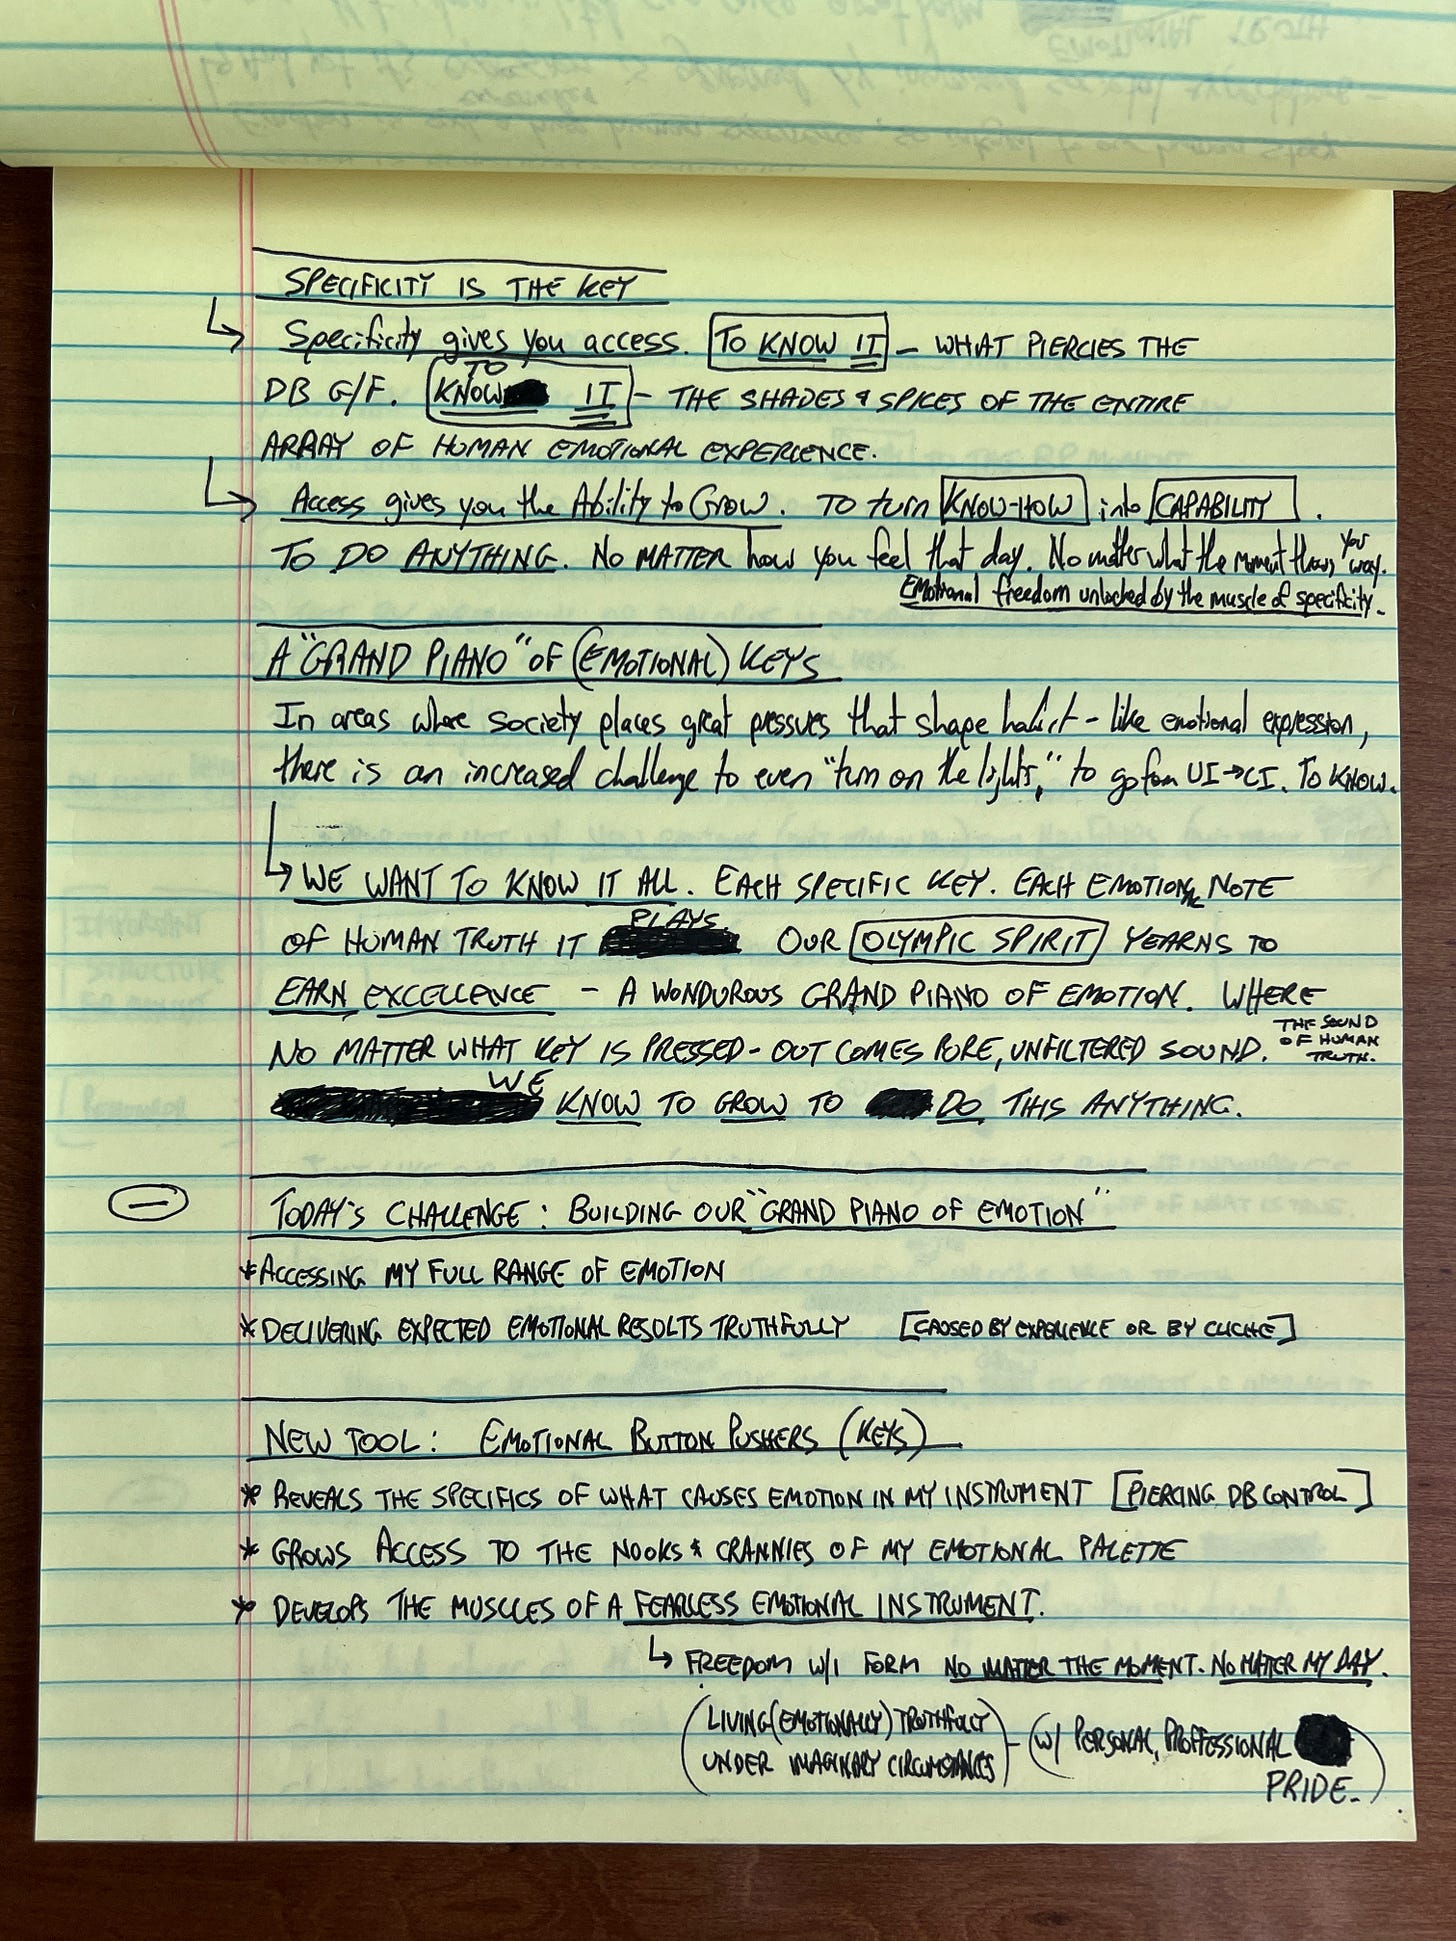 SPECIFICITY IS THE KEY
↳ Specificity gives you access. TO KNOW IT – WHAT PIERCIES THE
DB G/F. TO KNOW IT – THE SHADES & SPICES OF THE ENTIRE
ARRAY OF HUMAN EMOTIONAL EXPERIENCE.
↳ Access gives you the Ability to Grow. TO turn KNOW-HOW into CAPABILITY.
TO DO ANYTHING. NO MATTER how you feel that day. No matter what the moment throws you way.
Emotional freedom unlocked by the muscle of specificity.
A "GRAND PIANO" OF (EMOTIONAL) KEYS
In areas where society places great pressures that shape habit – like emotional expression,
there is an increased challenge to even "turn on the lights," to go from UI→CI. TO KNOW.
↳ WE WANT TO KNOW IT ALL. EACH SPECIFIC KEY. EACH EMOTIONAL NOTE
OF HUMAN TRUTH IT PLAYS OUR OLYMPIC SPIRIT YEARNS TO
EARN EXCELLENCE – A WONDUROUS GRAND PIANO OF EMOTION. WHERE
NO MATTER WHAT KEY IS PRESSED – OUT COMES PURE, UNFILTERED SOUND. THE SOUND OF HUMAN TRUTH.
WE KNOW TO GROW TO DO THIS ANYTHING.
TODAY'S CHALLENGE: BUILDING OUR "GRAND PIANO OF EMOTION"
* ACCESSING MY FULL RANGE OF EMOTION
* DELIVERING EXPECTED EMOTIONAL RESULTS TRUTHFULLY [CAUSED BY EXPERIENCE OR BY CLICHE]
NEW TOOL: EMOTIONAL BUTTON PUSHERS (KEYS)
* REVEALS THE SPECIFICS OF WHAT CAUSES EMOTION IN MY INSTRUMENT [PIERCING DB CONTROL]
* GROWS ACCESS TO THE NOOKS & CRANNIES OF MY EMOTIONAL PALETTE
* DEVELOPS THE MUSCLES OF A FEARLESS EMOTIONAL INSTRUMENT.
↳ FREEDOM W/I FORM NO MATTER THE MOMENT. NO MATTER MY DAY.
(LIVING (EMOTIONALLY) TRUTHFULLY
UNDER IMAGINARY CIRCUMSTANCES) – (W/ PERSONAL, PROFFESSIONAL
PRIDE.)